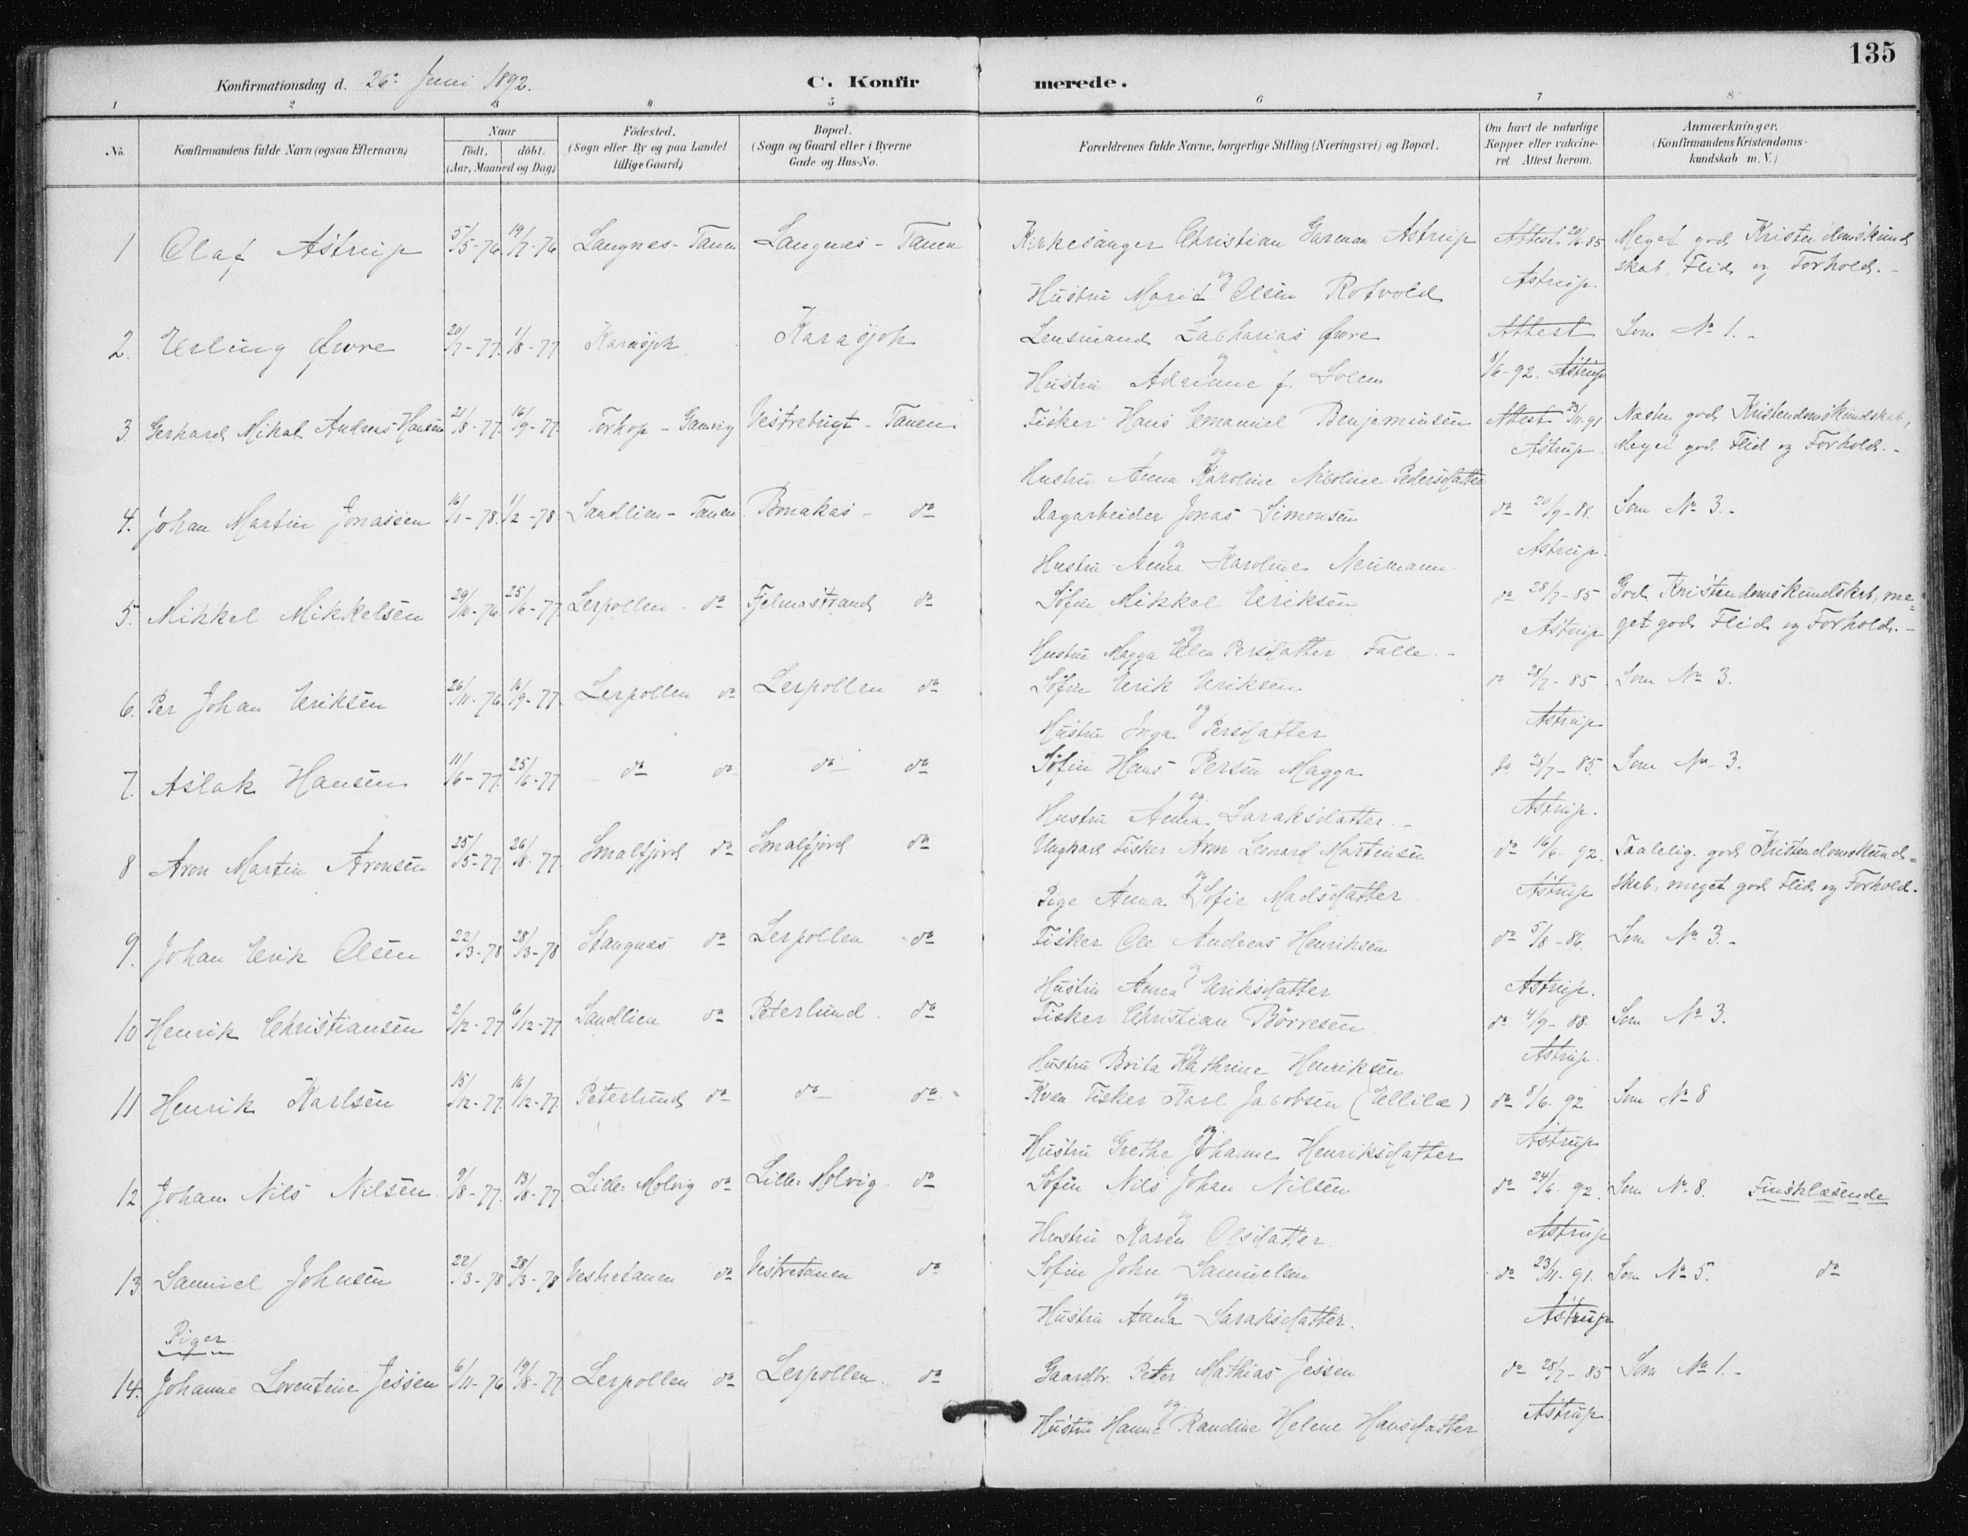 135
Konfirmationsdag d. 26de Juni 1892.
C. Konfir merede.
1 2 3 4 5 6 7 8
No. Konfirmandens fulde Navn (ogsaa Efternavn) Naar født. døbt. (Aar, Maaned og Dag) Fødested. (Sogn eller By og paa Landet tillige Gaard) Bopæl. (Sogn og Gaard eller i Byerne Gade og Hus-No. Forældrenes fulde Navne, borgerlige Stilling (Næringsvei) og Bopæl. Om havt de naturlige Kopper eller vakcineret. Attest herom. Anmærkninger. (Konfirmandens Kristendomskundskab m. V.)
1 Olaf Astrup 5/5-76 19/7-76 Langnes - Tanen Langnes - Tanen Kirkesanger Christian Garman Astrup Attest 20/6-85 Meget god Kristendomskund
og Astrup. skab, Flid og Forhold. -
Hustru Marit Olsen Rotvold
2. Erling Øwre 20/7-77. 1/8-77 Karasjok Karasjok Lensmand Zacharias Øwre Attest Som No 1. -
og 8/6-92. Astrup
Hustru Adriane f. Solem
3. Gerhard Mikal Andreas Hansen 21/8-77. 16/9-77. Torhop - Gamvig Vestrebugt - Tanen Fisker Hans Emanuel Benjaminsen Attest 23/11-91 Næsten god Kristendomskundskab,
og Astrup. Meget god Flid og Forhold. -
Hustru Anna Karoline Nicoline Pedersdatter
4. Johan Martin Jonassen 16/1-78. 1/2-78 Sandlien - Tanen Bonakas - do Dagarbeider Jonas Simonsen do 20/9-88. Som No 3. -
og Astrup.
Hustru Anna Karoline Neumann
5. Mikkel Mikkelsen 29/10-76 25/6-77. Lerpollen - do Fjelmastrand do Søfin Mikkel Eriksen do 28/7-85 God Kristendomskundskab, me-
og Astrup get god Flid og Forhold. -
Hustru Magga Elen Persdatter Falle. -
6. Per Johan Eriksen 26/11-76 16/9-77. Lerpollen do Lerpollen do Søfin Erik Eriksen do 28/7-85 Som No 3.
og Astrup
Hustru Inga Persdatter
7. Aslak Hansen 11/6-77. 25/6-77 do do do do Søfin Hans Persen Magga do 28/7-85. Som No 3.
og Astrup.
Hustru Anna Saraksdatter. -
8 Aron Martin Aronsen 25/5-77. 26/8-77. Smalfjord do Smalfjord do Ungkarl Fisker Aron Leonard Martinsen do 16/6-92. Taalelig god Kristendomskund-
og Astrup skab, meget god Flid og Forhold.
Pige Anna Sofie Madsdatter
9. Johan Erik Olsen 22/3-78 28/3-78 Stangnæs do Lerpollen - do Fisker Ole Andreas Henriksen do 5/8-86. Som No 3. -
og Astrup.
Hustru Anna Eriksdatter
10 Henrik Christiansen 2/12-77 6/12-77 Sandlien do Peterlund. do Fisker Christian Børresen do 4/9-88. Som No 3.
og Astrup.
Hustru Brita Kathrine Henriksen
11 Henrik Karlsen 15/12-77. 16/12-77. Peterlund do do do. Kvæn Fisker Karl Jacobsen (Ellilæ) do 8/6-92 Som No 8
og Astrup
Hustru Grethe Johanne Henriksdatter
12 Johan Nils Nilsen. 9/8-77. 13/8-77. Lille-Molvig do Lille-Molvig. do Søfin Nils Johan Nilsen do 24/6-92. Som No 8. Finsklæsende
og Astrup
Hustru Karen Olsdatter.
13 Samuel Johnsen 22/3-78 28/3-78 Vestretanen do Vestretanen do Søfin John Samuelsen do 23/11-91. Som No 5. do
og Astrup
Hustru Anna Saraksdatter.
Piger
14. Johanne Lorentine Jessen 6/11-76 19/8-77 Lerpollen do Lerpollen. do Gaardbr. Peter Mathias Jessen do 28/7-85 Som No 1. -
og Astrup
Hustru Hanne Randine Helene Hansdatter